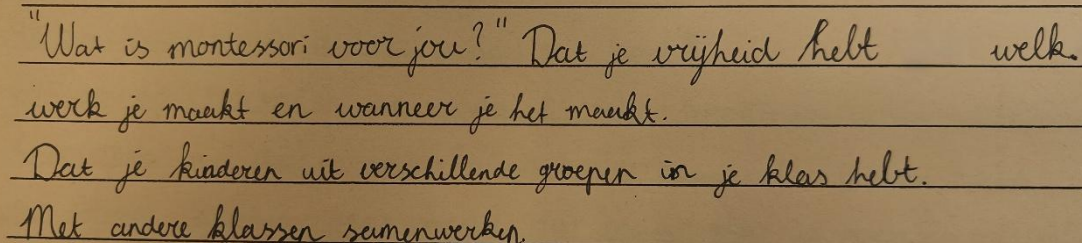 "Wat is montessori voor jou?" Dat je vrijheid hebt welk
werk je maakt en wanneer je het maakt.
Dat je kinderen uit verschillende groepen in je klas hebt.
Met andere klassen samenwerken.